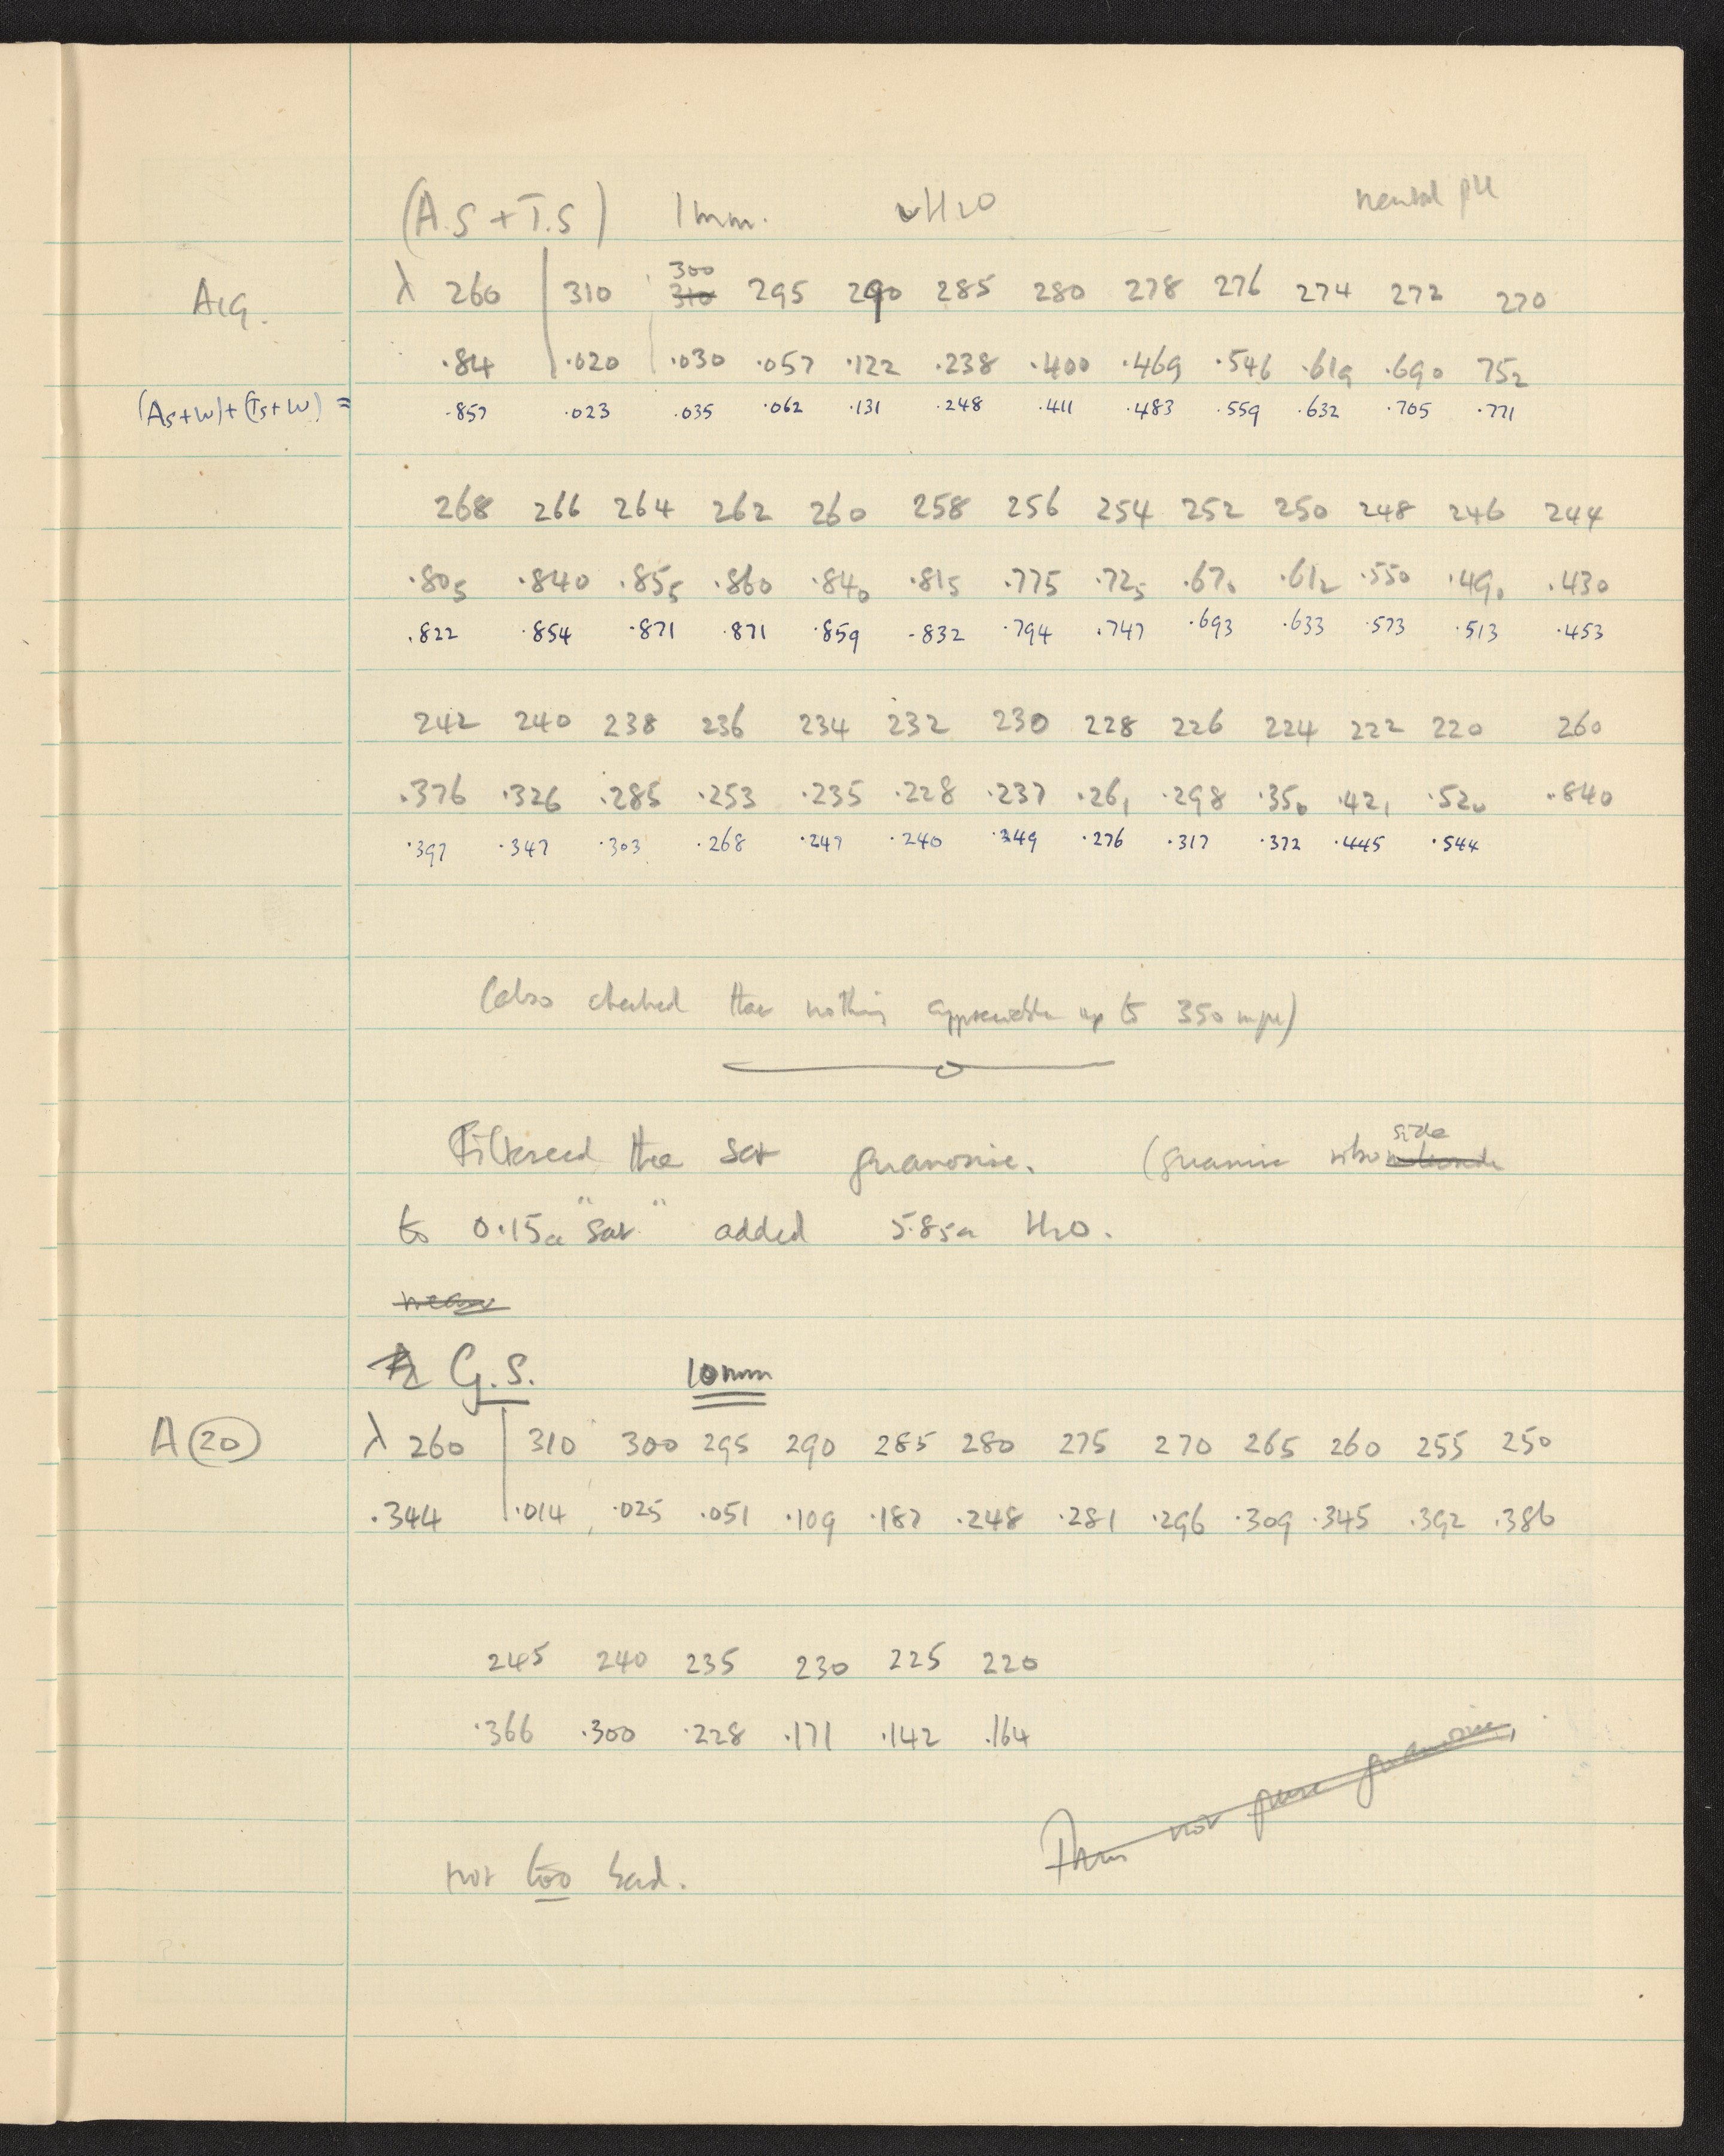 (A.S + T.S) 1mm. v H2O neutral pH
300
A19. λ 260 310 310 295 290 285 280 278 276 274 272 270
.84 .020 .030 .057 .122 .238 .400 .469 .546 .619 .690 752
(As+w)+(Ts+w) = .857 .023 .035 .062 .131 .248 .411 .483 .559 .632 .705 .771
268 266 264 262 260 258 256 254 252 250 248 246 244
.805 .840 .855 .860 .840 .815 .775 .725 .670 .612 .550 .490 .430
.822 .854 .871 .871 .859 .832 .794 .747 .693 .633 .573 .513 .453
242 240 238 236 234 232 230 228 226 224 222 220 260
.376 .326 .285 .253 .235 .228 .237 .261 .298 .350 .421 .520 .840
.397 .347 .303 .268 .247 .240 .249 .276 .317 .372 .445 .544
(also checked that nothing appreciable up to 350 mμ)
side
Filtered the sat guanosine. (guanine ribo
to 0.15cc "sat" added 5.85cc H2O.
G.S. 10mm
A(20) λ 260 310 300 295 290 285 280 275 270 265 260 255 250
.344 .014 .025 .051 .109 .187 .248 .281 .296 .309 .345 .392 .386
245 240 235 230 225 220
.366 .300 .228 .171 .142 .164
Thus not pure guanosine,
not too bad.